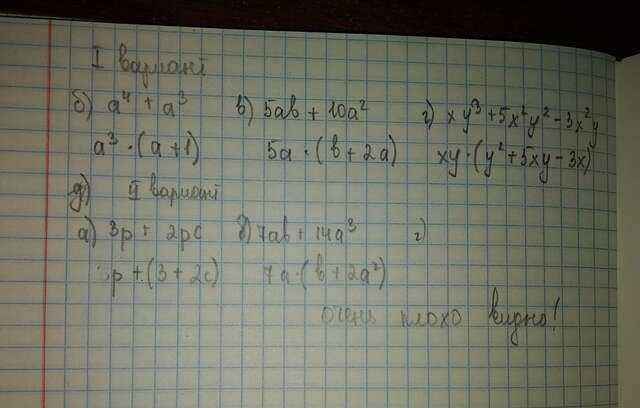 I вариант
б) a⁴ + a³ в) 5ab + 10a² г) xy³ + 5x²y² - 3x²y
a³ · (a + 1) 5a · (b + 2a) xy · (y² + 5xy - 3x)
д) II вариант
а) 3p + 2pc б) 7ab + 14a³ г)
p + (3 + 2c) 7a · (b + 2a²)
очень плохо видно!